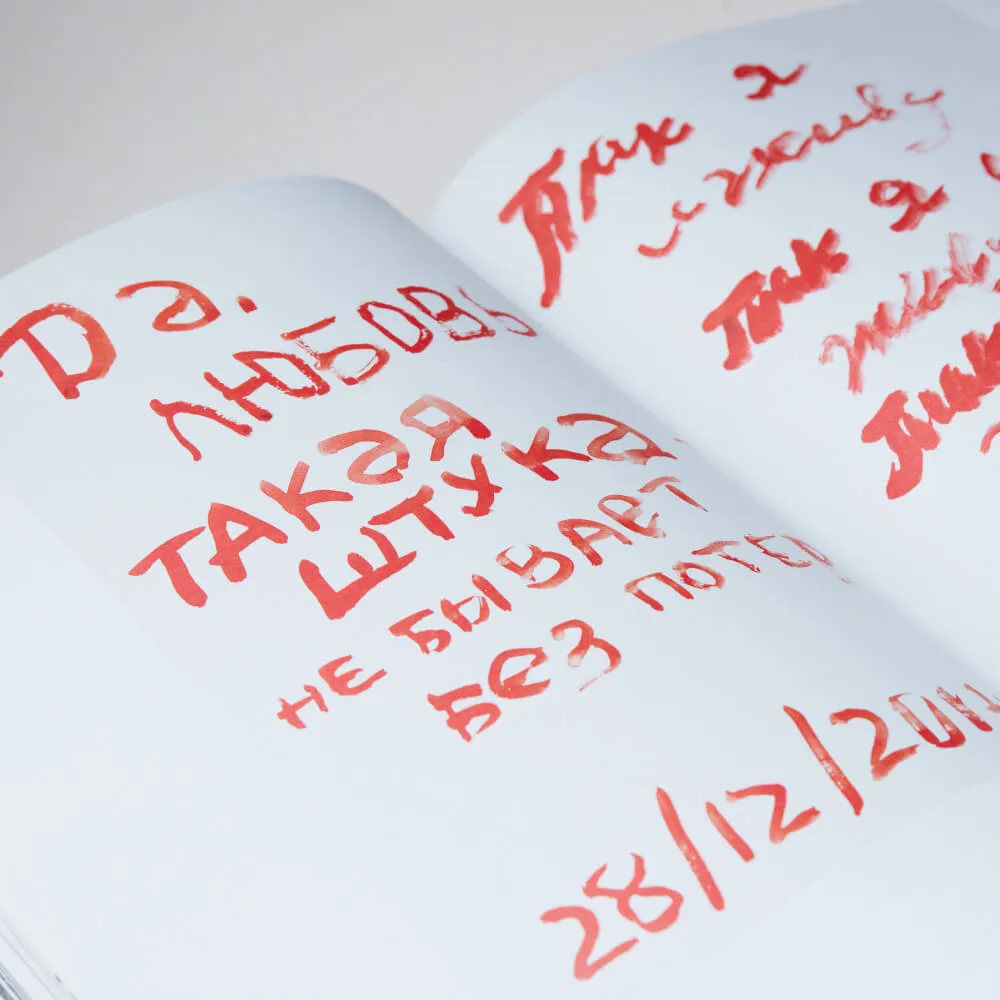 Да.
ЛЮБОВЬ
ТАКАЯ
ШТУКА
НЕ БЫВАЕТ
БЕЗ ПОТЕР
28/12/201
Так я
и живу
Так я
живу
Так